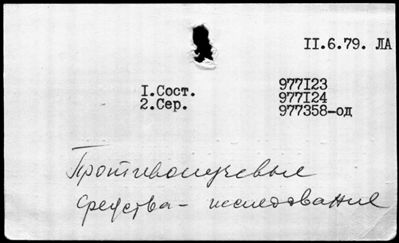 II.6.79. ЛА
I.Сост. 977I23
2.Сер. 977I24
977358-од
Противолучевые
средства - исследование